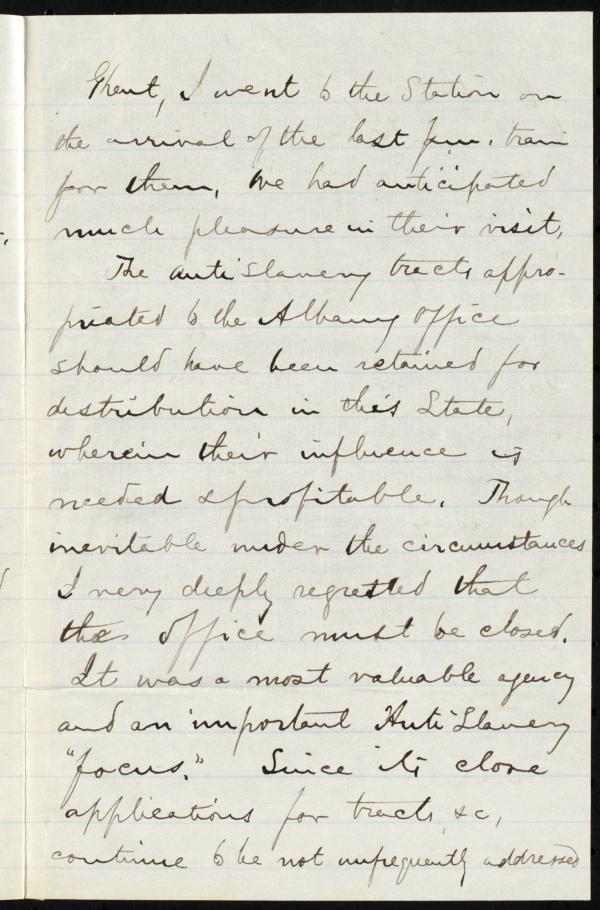 Ghent, I went to the Station on
the arrival of the last p.m. train
for them, We had anticipated
much pleasure in their visit,
The anti Slavery tracts appro-
priated to the Albany Office
should have been retained for
distribution in this State,
wherein their influence is
needed & profitable. Though
inevitable under the circumstances
I very deeply regretted that
this office must be closed.
It was a most valuable agency
and an important Anti Slavery
"focus." Since its close
applications for tracts &c,
continue to be not unfrequently addressed